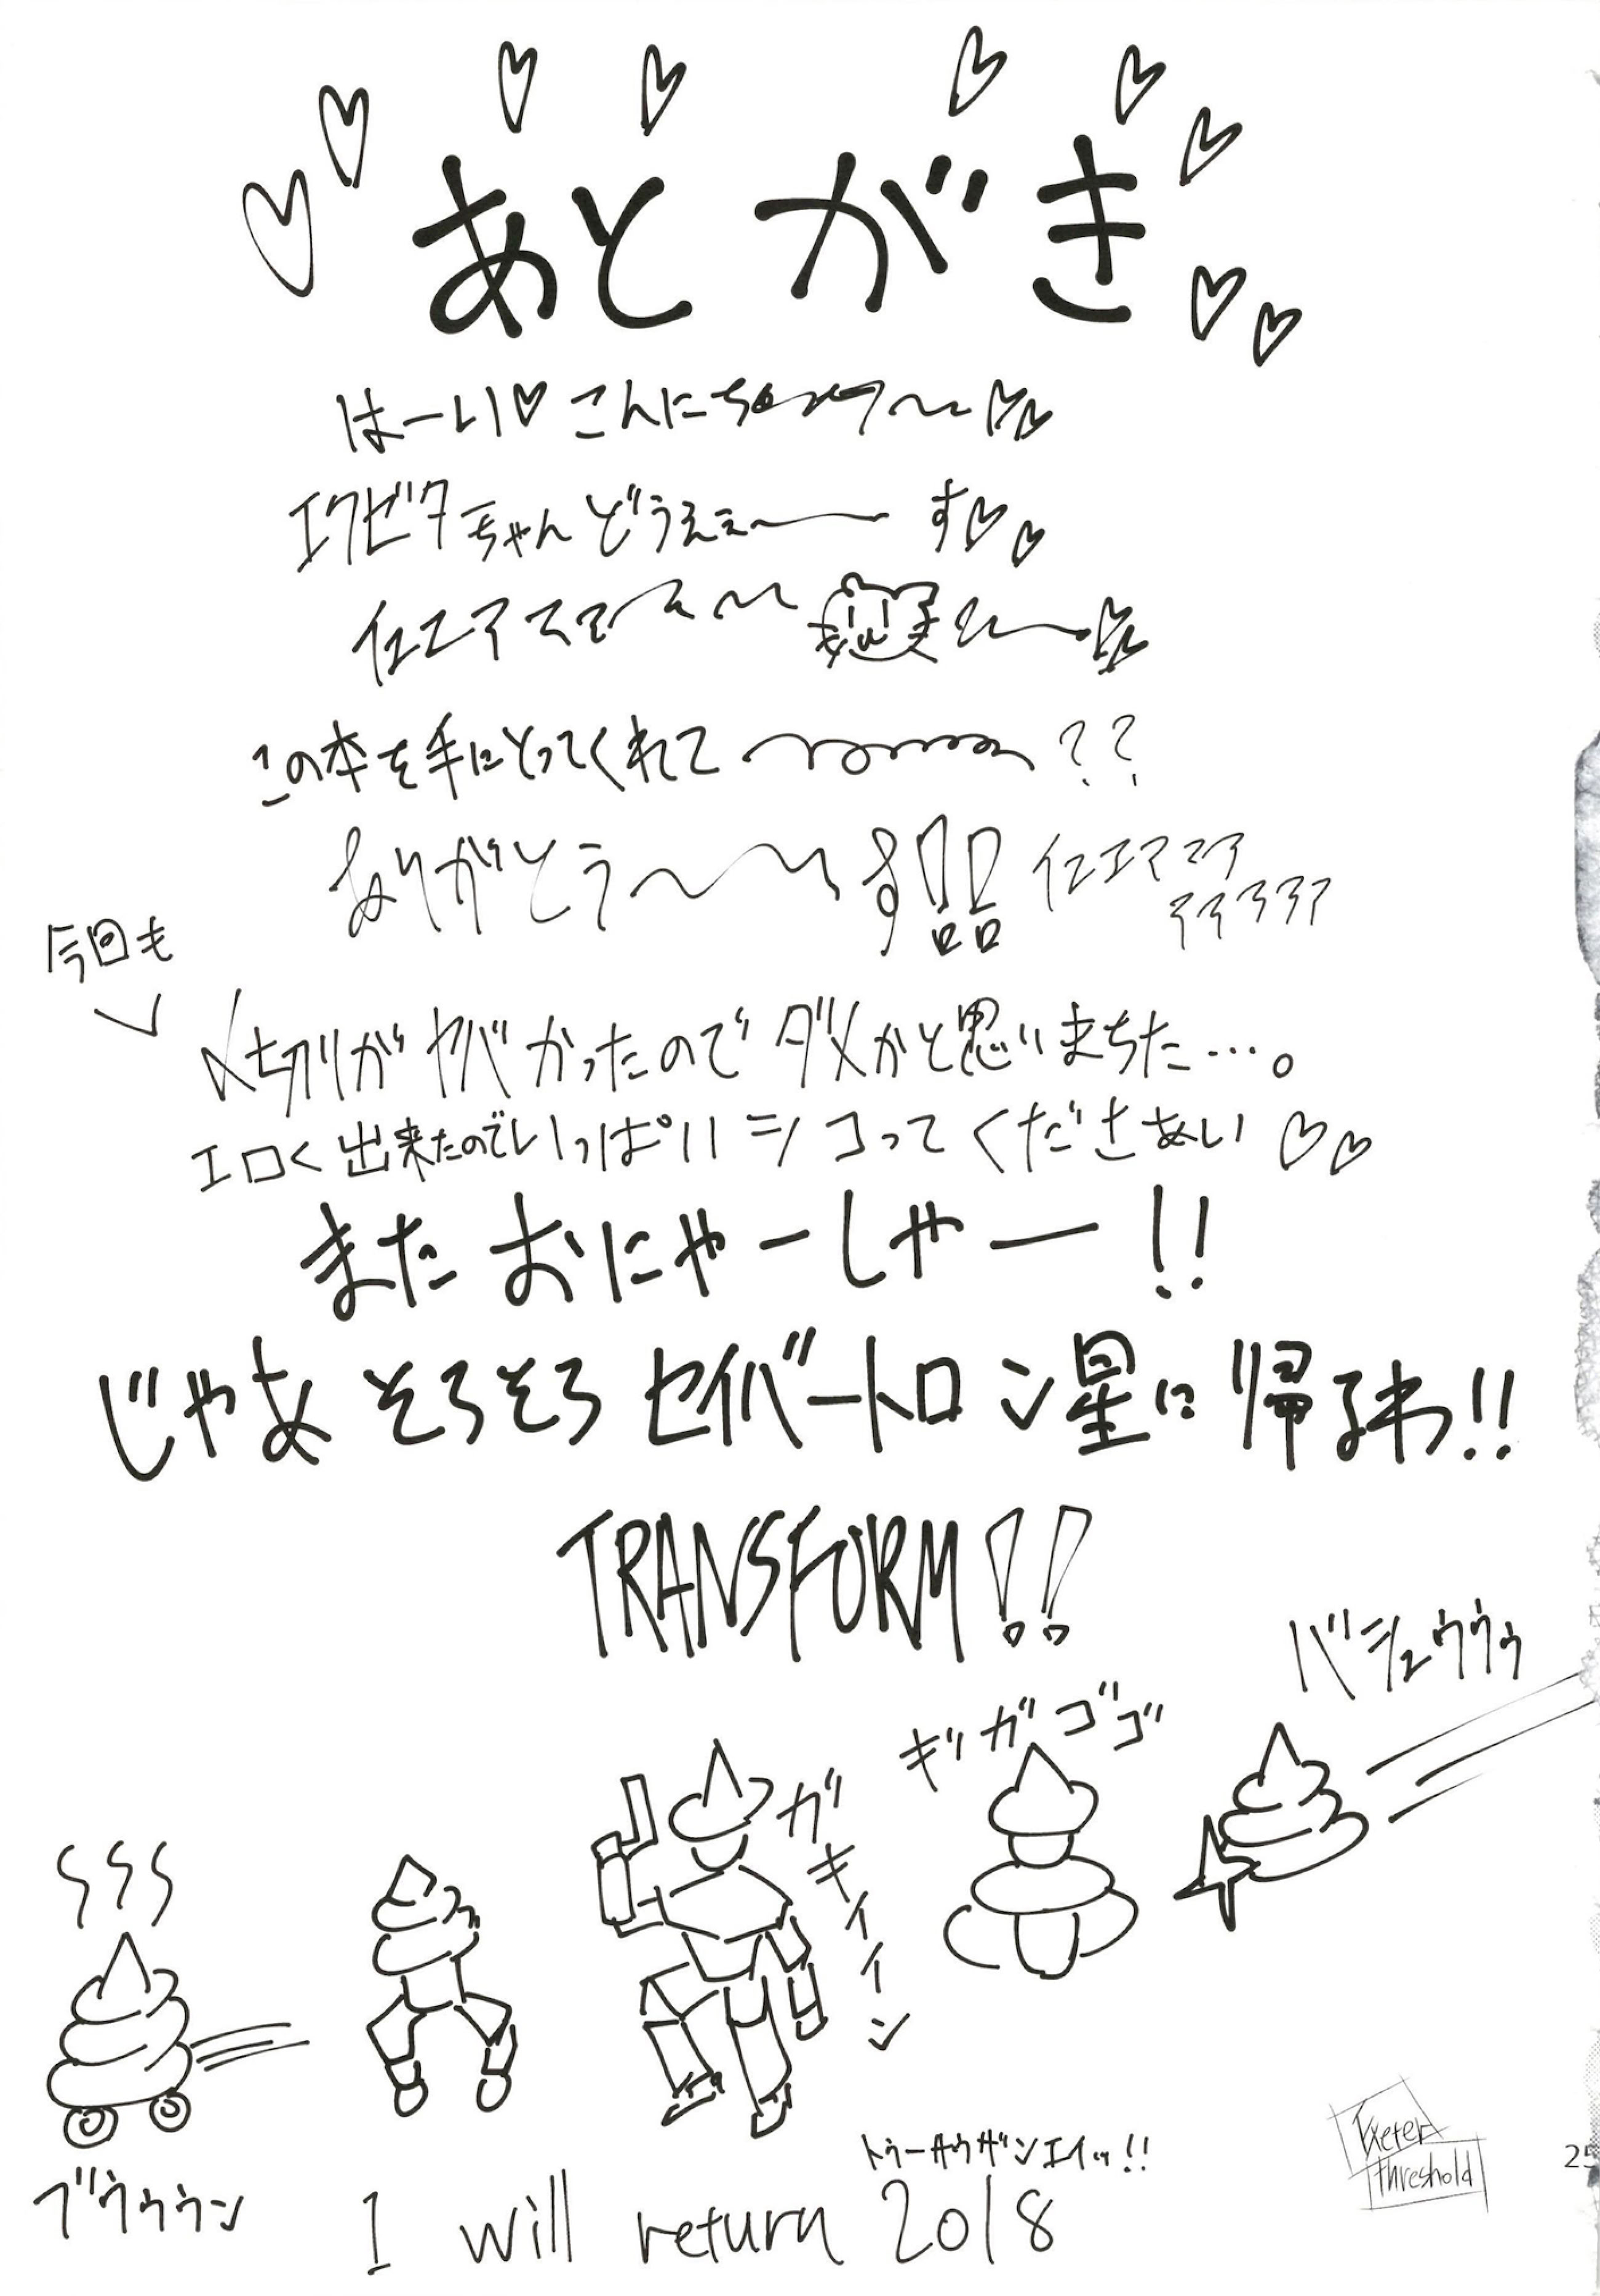 あとがき
はーい♡こんにち
エクゼタちゃんどうえぇ〜 す♡♡
イエエア
この本を手にとってくれて ??
ありがとう〜 す!!
イエエ
今回も
〆切りがヤバかったのでダメかと思いまちた…。
エロく出来たのでいっぱいシコってくださぁい♡♡
またおにゃーしゃー!!
じゃあそろそろセイバートロン星に帰るわ!!
TRANSFORM!!
バシュゥゥゥ
ギガゴゴ
ガキイイン
ブウゥゥン
トゥーサウザンエイッ!!
I will return 2018
Exeter
threshold
25